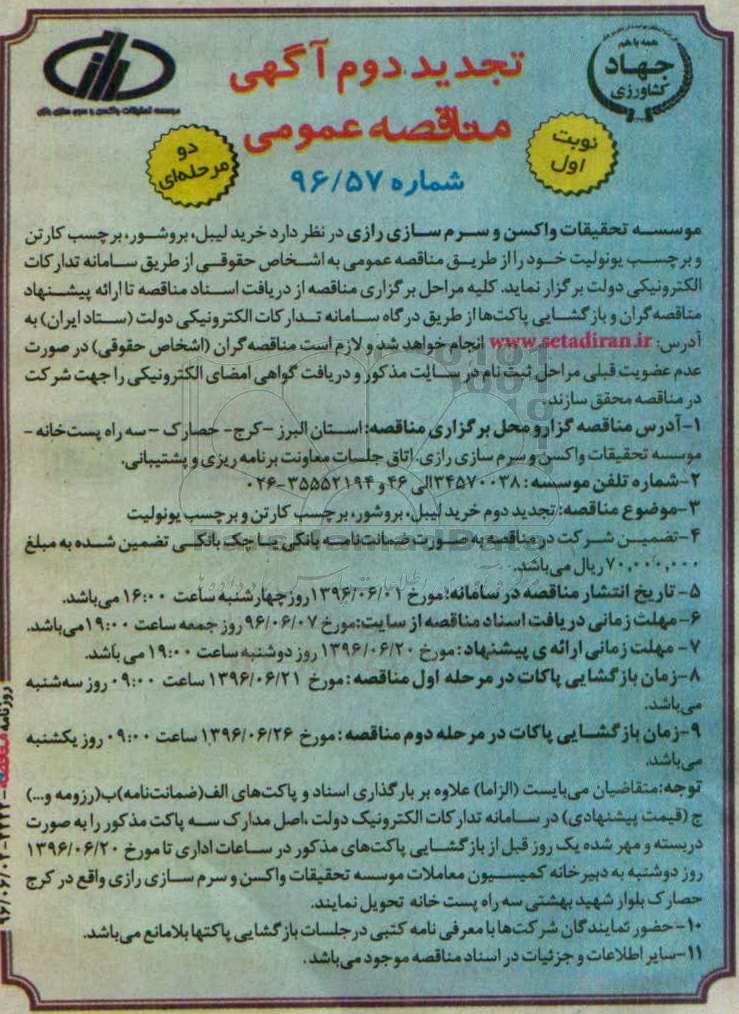 همه با هم
جهاد
کشاورزی
موسسه تحقیقات واکسن و سرم سازی رازی
تجدید دوم آگهی
مناقصه عمومی
شماره ۹۶/۵۷
نوبت
اول
دو
مرحله‌ای
موسسه تحقیقات واکسن و سرم سازی رازی در نظر دارد خرید لیبل، بروشور، برچسب کارتن
و برچسب یونولیت خود را از طریق مناقصه عمومی به اشخاص حقوقی از طریق سامانه تدارکات
الکترونیکی دولت برگزار نماید. کلیه مراحل برگزاری مناقصه از دریافت اسناد مناقصه تا ارائه پیشنهاد
مناقصه‌گران و بازگشایی پاکت‌ها از طریق درگاه سامانه تدارکات الکترونیکی دولت (ستاد ایران) به
آدرس: www.setadiran.ir انجام خواهد شد و لازم است مناقصه‌گران (اشخاص حقوقی) در صورت
عدم عضویت قبلی مراحل ثبت نام در سایت مذکور و دریافت گواهی امضای الکترونیکی را جهت شرکت
در مناقصه محقق سازند.
۱-آدرس مناقصه گزار و محل برگزاری مناقصه: استان البرز -کرج- حصارک -سه راه پست‌خانه -
موسسه تحقیقات واکسن و سرم سازی رازی، اتاق جلسات معاونت برنامه ریزی و پشتیبانی.
۲-شماره تلفن موسسه: ۳۴۵۷۰۰۳۸ الی ۴۶ و ۳۵۵۵۲۱۹۴-۰۲۶
۳-موضوع مناقصه: تجدید دوم خرید لیبل، بروشور، برچسب کارتن و برچسب یونولیت
۴-تضمین شرکت در مناقصه به صورت ضمانت‌نامه بانکی یا چک بانکی تضمین شده به مبلغ
۷۰,۰۰۰,۰۰۰ ریال می‌باشد.
۵- تاریخ انتشار مناقصه در سامانه: مورخ ۱۳۹۶/۰۶/۰۱ روز چهارشنبه ساعت ۱۶:۰۰ می‌باشد.
۶-مهلت زمانی دریافت اسناد مناقصه از سایت: مورخ ۹۶/۰۶/۰۷ روز جمعه ساعت ۱۹:۰۰ می‌باشد.
۷- مهلت زمانی ارائه ی پیشنهاد: مورخ ۱۳۹۶/۰۶/۲۰ روز دوشنبه ساعت ۱۹:۰۰ می باشد.
۸-زمان بازگشایی پاکات در مرحله اول مناقصه: مورخ ۱۳۹۶/۰۶/۲۱ ساعت ۰۹:۰۰ روز سه‌شنبه
می‌باشد.
۹-زمان بازگشایی پاکات در مرحله دوم مناقصه: مورخ ۱۳۹۶/۰۶/۲۶ ساعت ۰۹:۰۰ روز یکشنبه
می‌باشد.
توجه: متقاضیان می‌بایست (الزاما) علاوه بر بارگذاری اسناد و پاکت‌های الف(ضمانت‌نامه)ب(رزومه و...)
ج (قیمت پیشنهادی) در سامانه تدارکات الکترونیک دولت ،اصل مدارک سه پاکت مذکور را به صورت
دربسته و مهر شده یک روز قبل از بازگشایی پاکت‌های مذکور در ساعات اداری تا مورخ ۱۳۹۶/۰۶/۲۰
روز دوشنبه به دبیرخانه کمیسیون معاملات موسسه تحقیقات واکسن و سرم سازی رازی واقع در کرج
حصارک بلوار شهید بهشتی سه راه پست خانه تحویل نمایند.
۱۰-حضور نمایندگان شرکت‌ها با معرفی نامه کتبی در جلسات بازگشایی پاکتها بلامانع می‌باشد.
۱۱-سایر اطلاعات و جزئیات در اسناد مناقصه موجود می‌باشد.